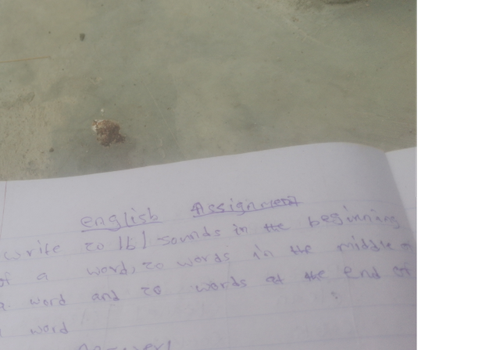 english Assignment
write to /b/ sounds in the beginning
of a word, to words in the middle of
a word and to words at the end of
word
Answer